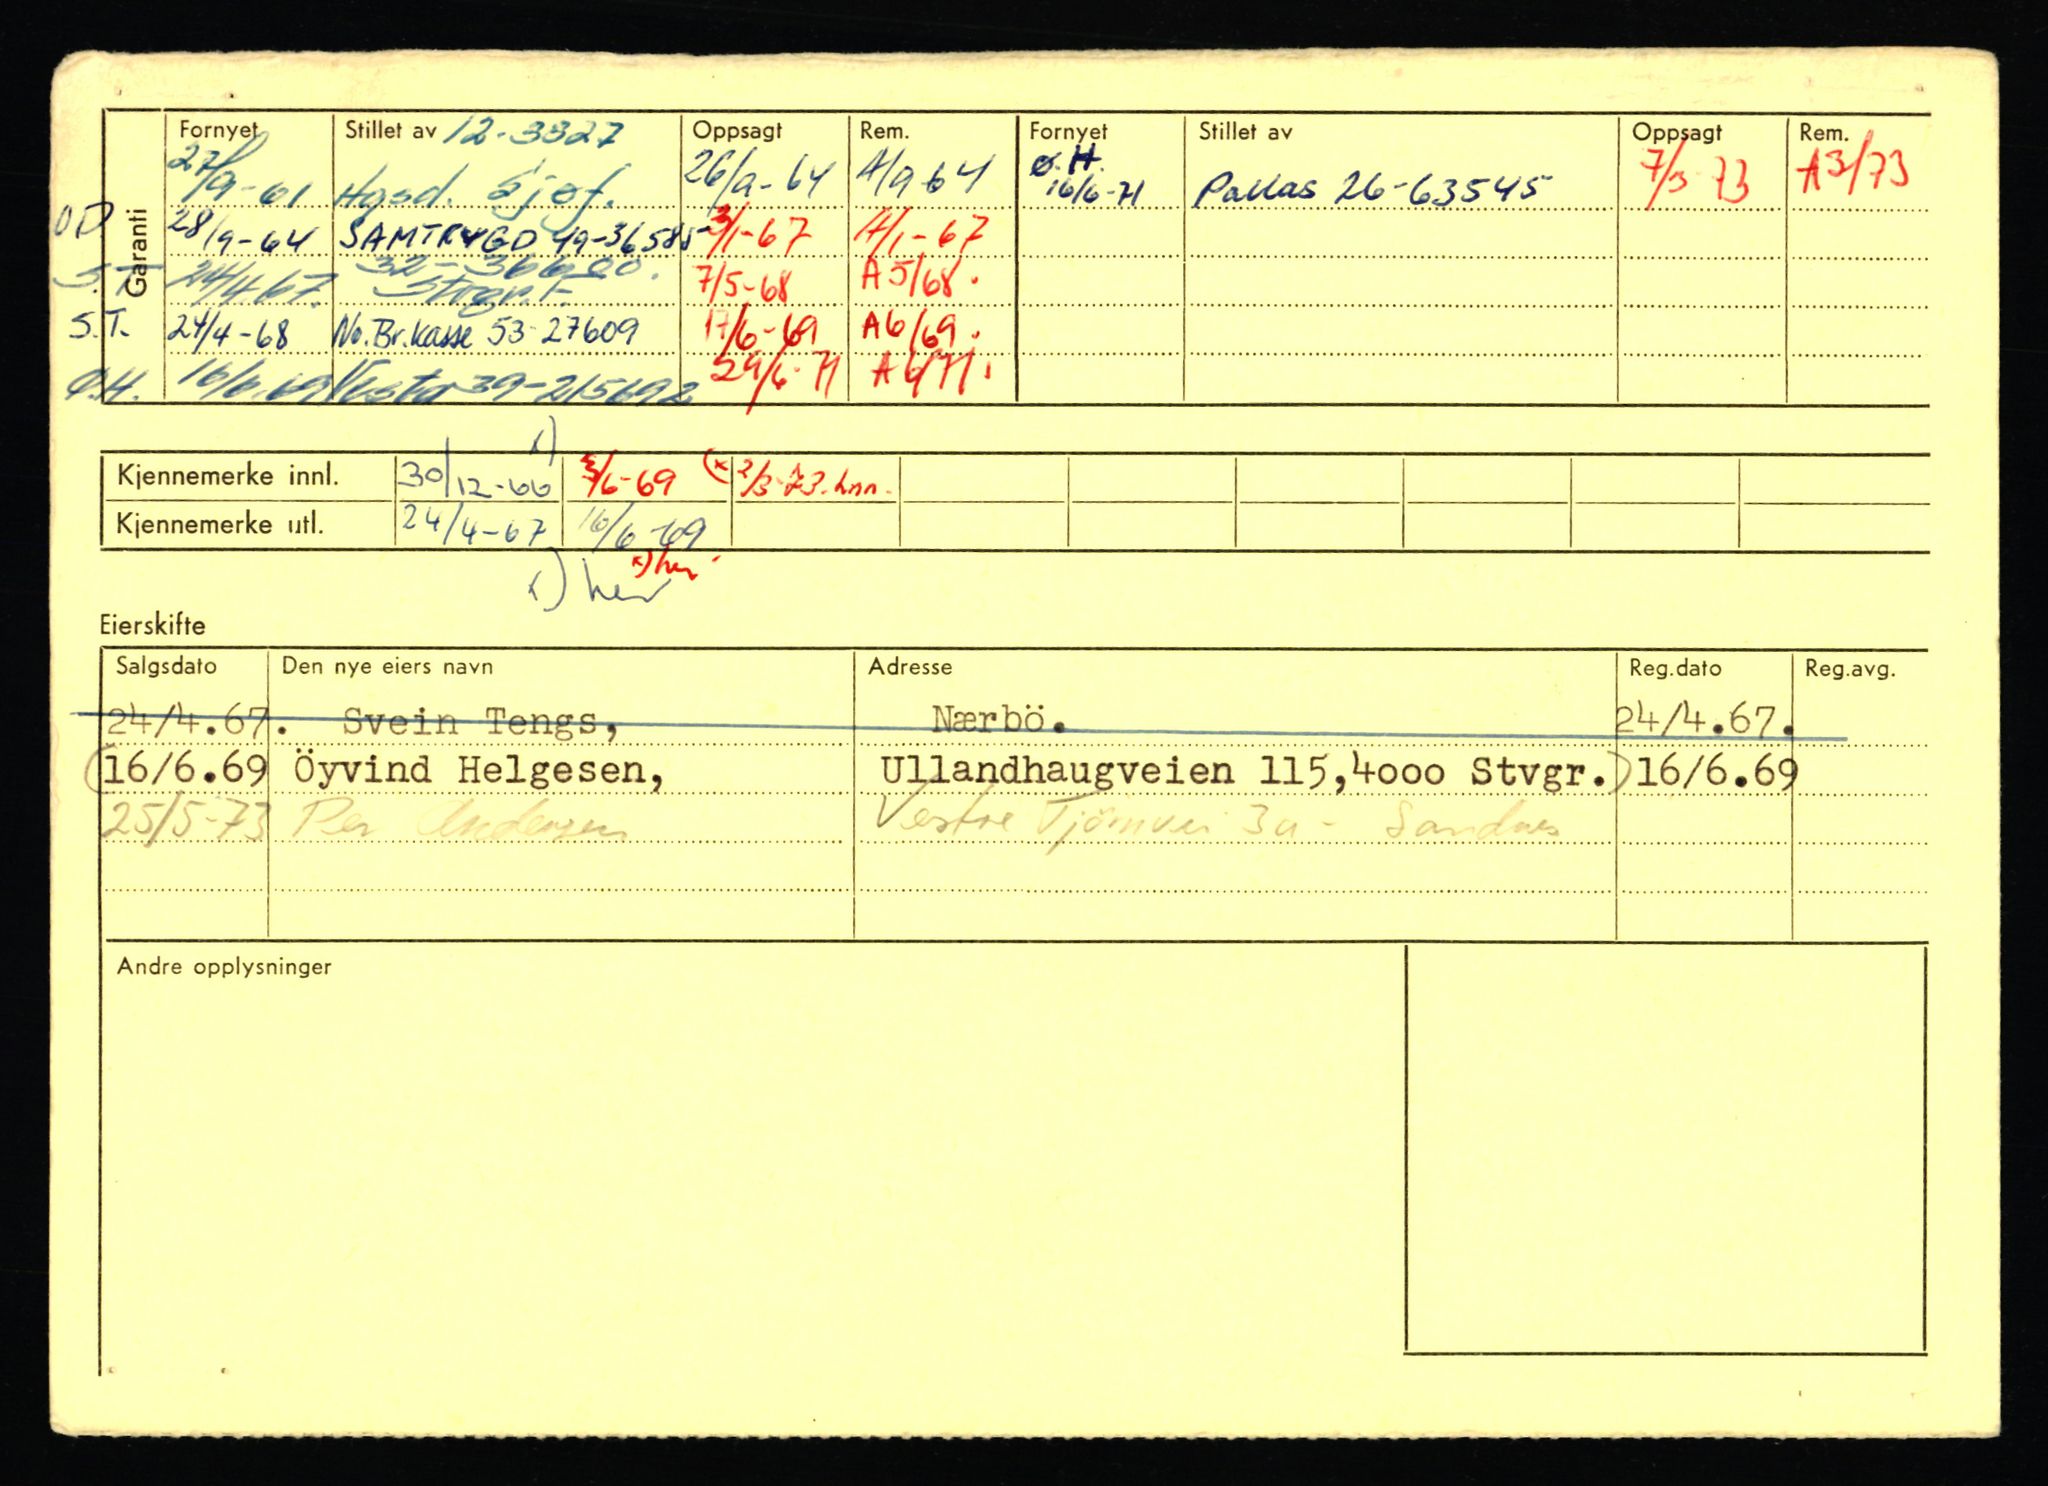 Garanti
Fornyet Stillet av 12-3327 Oppsagt Rem. Fornyet Stillet av Oppsagt Rem.
27/9-61 Hgsd. Sjøf. 26/9-64 A/9-64 Ø.H. 16/6-71 Pallas 26-63545 7/3-73 A3/73
OD 28/9-64 SAMTRYGD 49-36585 3/1-67 A/1-67
S.T. 24/4.67. 32-36680. Stvgr.F. 7/5-68 A5/68.
S.T. 24/4-68 No.Br.kasse 53-27609 17/6-69 A6/69.
Ø.H. 16/6.69 Vesta 39-215692 29/6-71 A6/71.
x)
Kjennemerke innl. 30/12-66 3/6-69 (x 2/3-73.
Kjennemerke utl. 24/4-67 16/6-69
x) her
x) her
Eierskifte
Salgsdato Den nye eiers navn Adresse Reg.dato Reg.avg.
24/4.67. Svein Tengs, Nærbö. 24/4.67.
(16/6.69 Öyvind Helgesen, Ullandhaugveien 115,4000 Stvgr.) 16/6.69
25/5-73 Per Andersen Vestre Tjörnvei 3a - Sandnes
Andre opplysninger